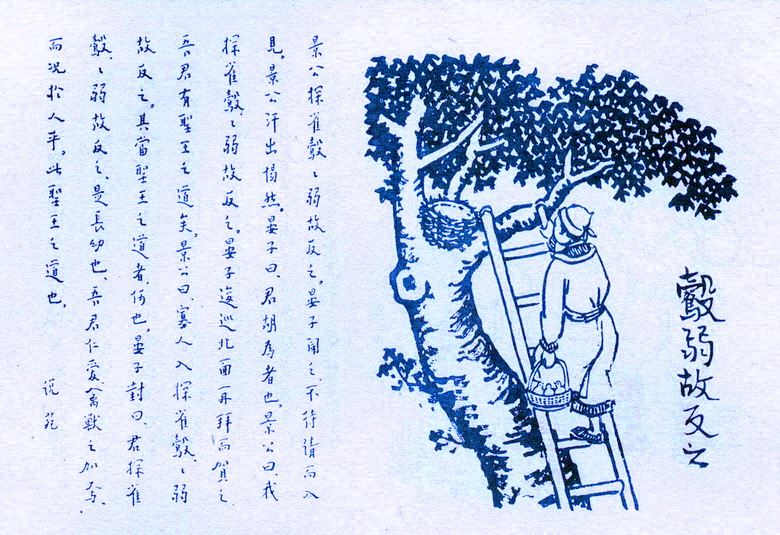 鷇弱故反之
景公探雀鷇〻弱故反之。晏子聞之、不待請而入
見。景公汗出惕然。晏子曰、君胡為者也。景公曰、我
探雀鷇〻弱故反之。晏子逡巡北面再拜而賀之、
吾君有聖王之道矣。景公曰、寡人入探雀鷇〻弱
故反之。其當聖王之道者何也。晏子對曰、君探雀
鷇〻弱故反之、是長幼也、吾君仁愛、禽獸之加焉、
而況於人乎。此聖王之道也。
說苑